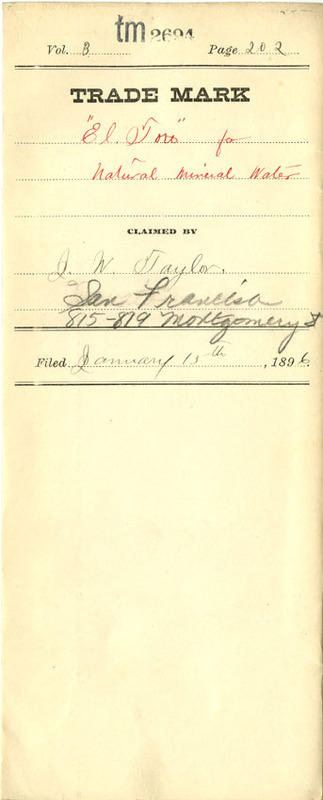 tm 2694
Vol. 3 Page 202
TRADE MARK
"El Toro" for
Natural Mineral Water
CLAIMED BY
J. W. Taylor.
San Francisco
815-819 Montgomery St
Filed January 15th, 1896.